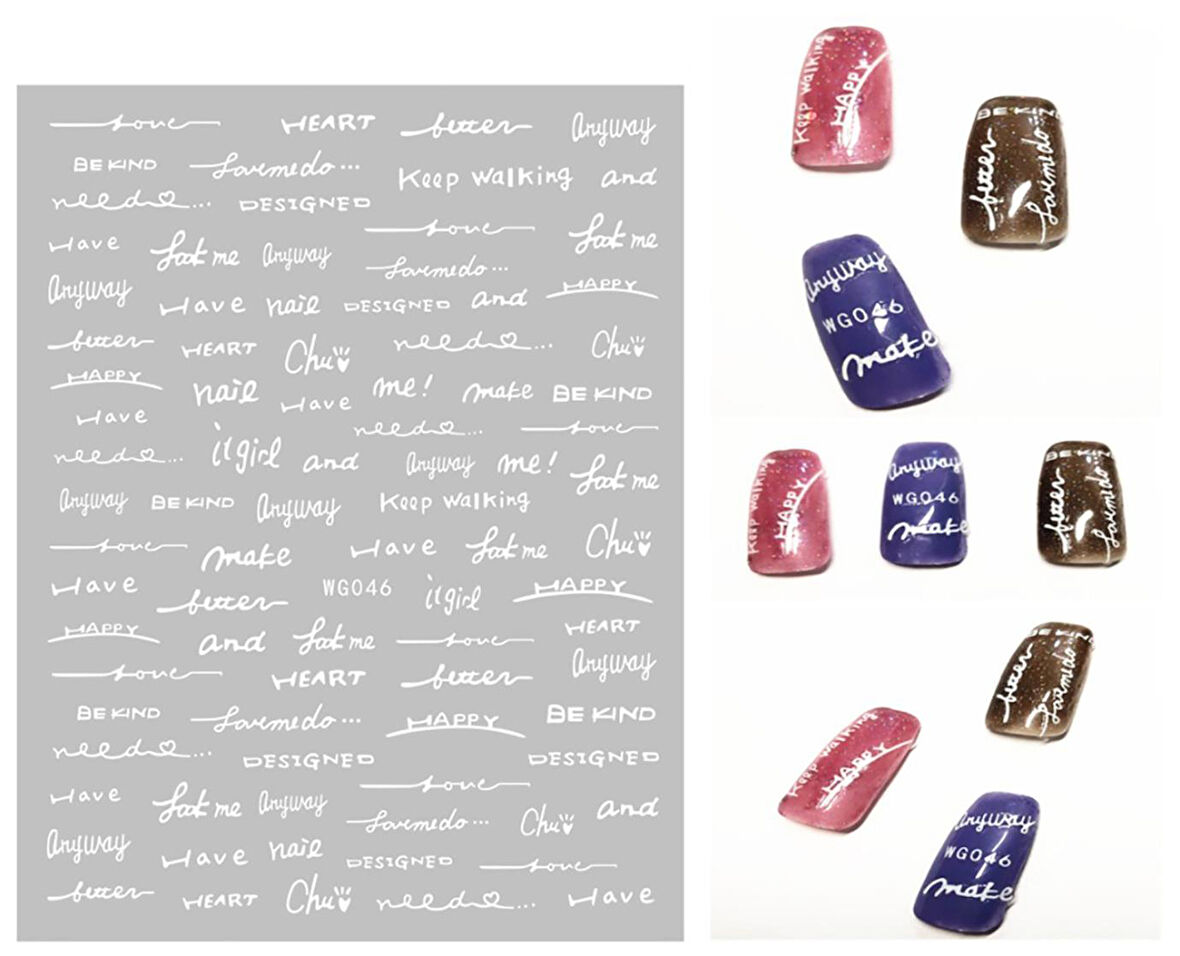 love HEART better Anyway
BE KIND Lovemedo...
Keep walking and
need... DESIGNED
love
Have Look me Anyway Look me
Lovemedo...
Anyway Have nail DESIGNED and HAPPY
better HEART Chu need... Chu
HAPPY nail Have me! make BE KIND
Have
need... love
need... it girl and Anyway me! Look me
Anyway BE KIND Anyway Keep walking
love make Have Look me Chu
Have better WG046 it girl HAPPY
HAPPY and Look me love HEART
love HEART better Anyway
BE KIND Lovemedo... HAPPY BE KIND
need... DESIGNED DESIGNED
love
Have Look me Anyway Lovemedo... Chu and
Anyway Have nail DESIGNED love
better HEART Chu need... Have
Keep walking
HAPPY
BE KIND
better
Lovemedo
Anyway
WG046
make
Keep walking
HAPPY
Anyway
WG046
make
BE KIND
better
Lovemedo
BE KIND
better
Lovemedo
Keep walking
HAPPY
Anyway
WG046
make